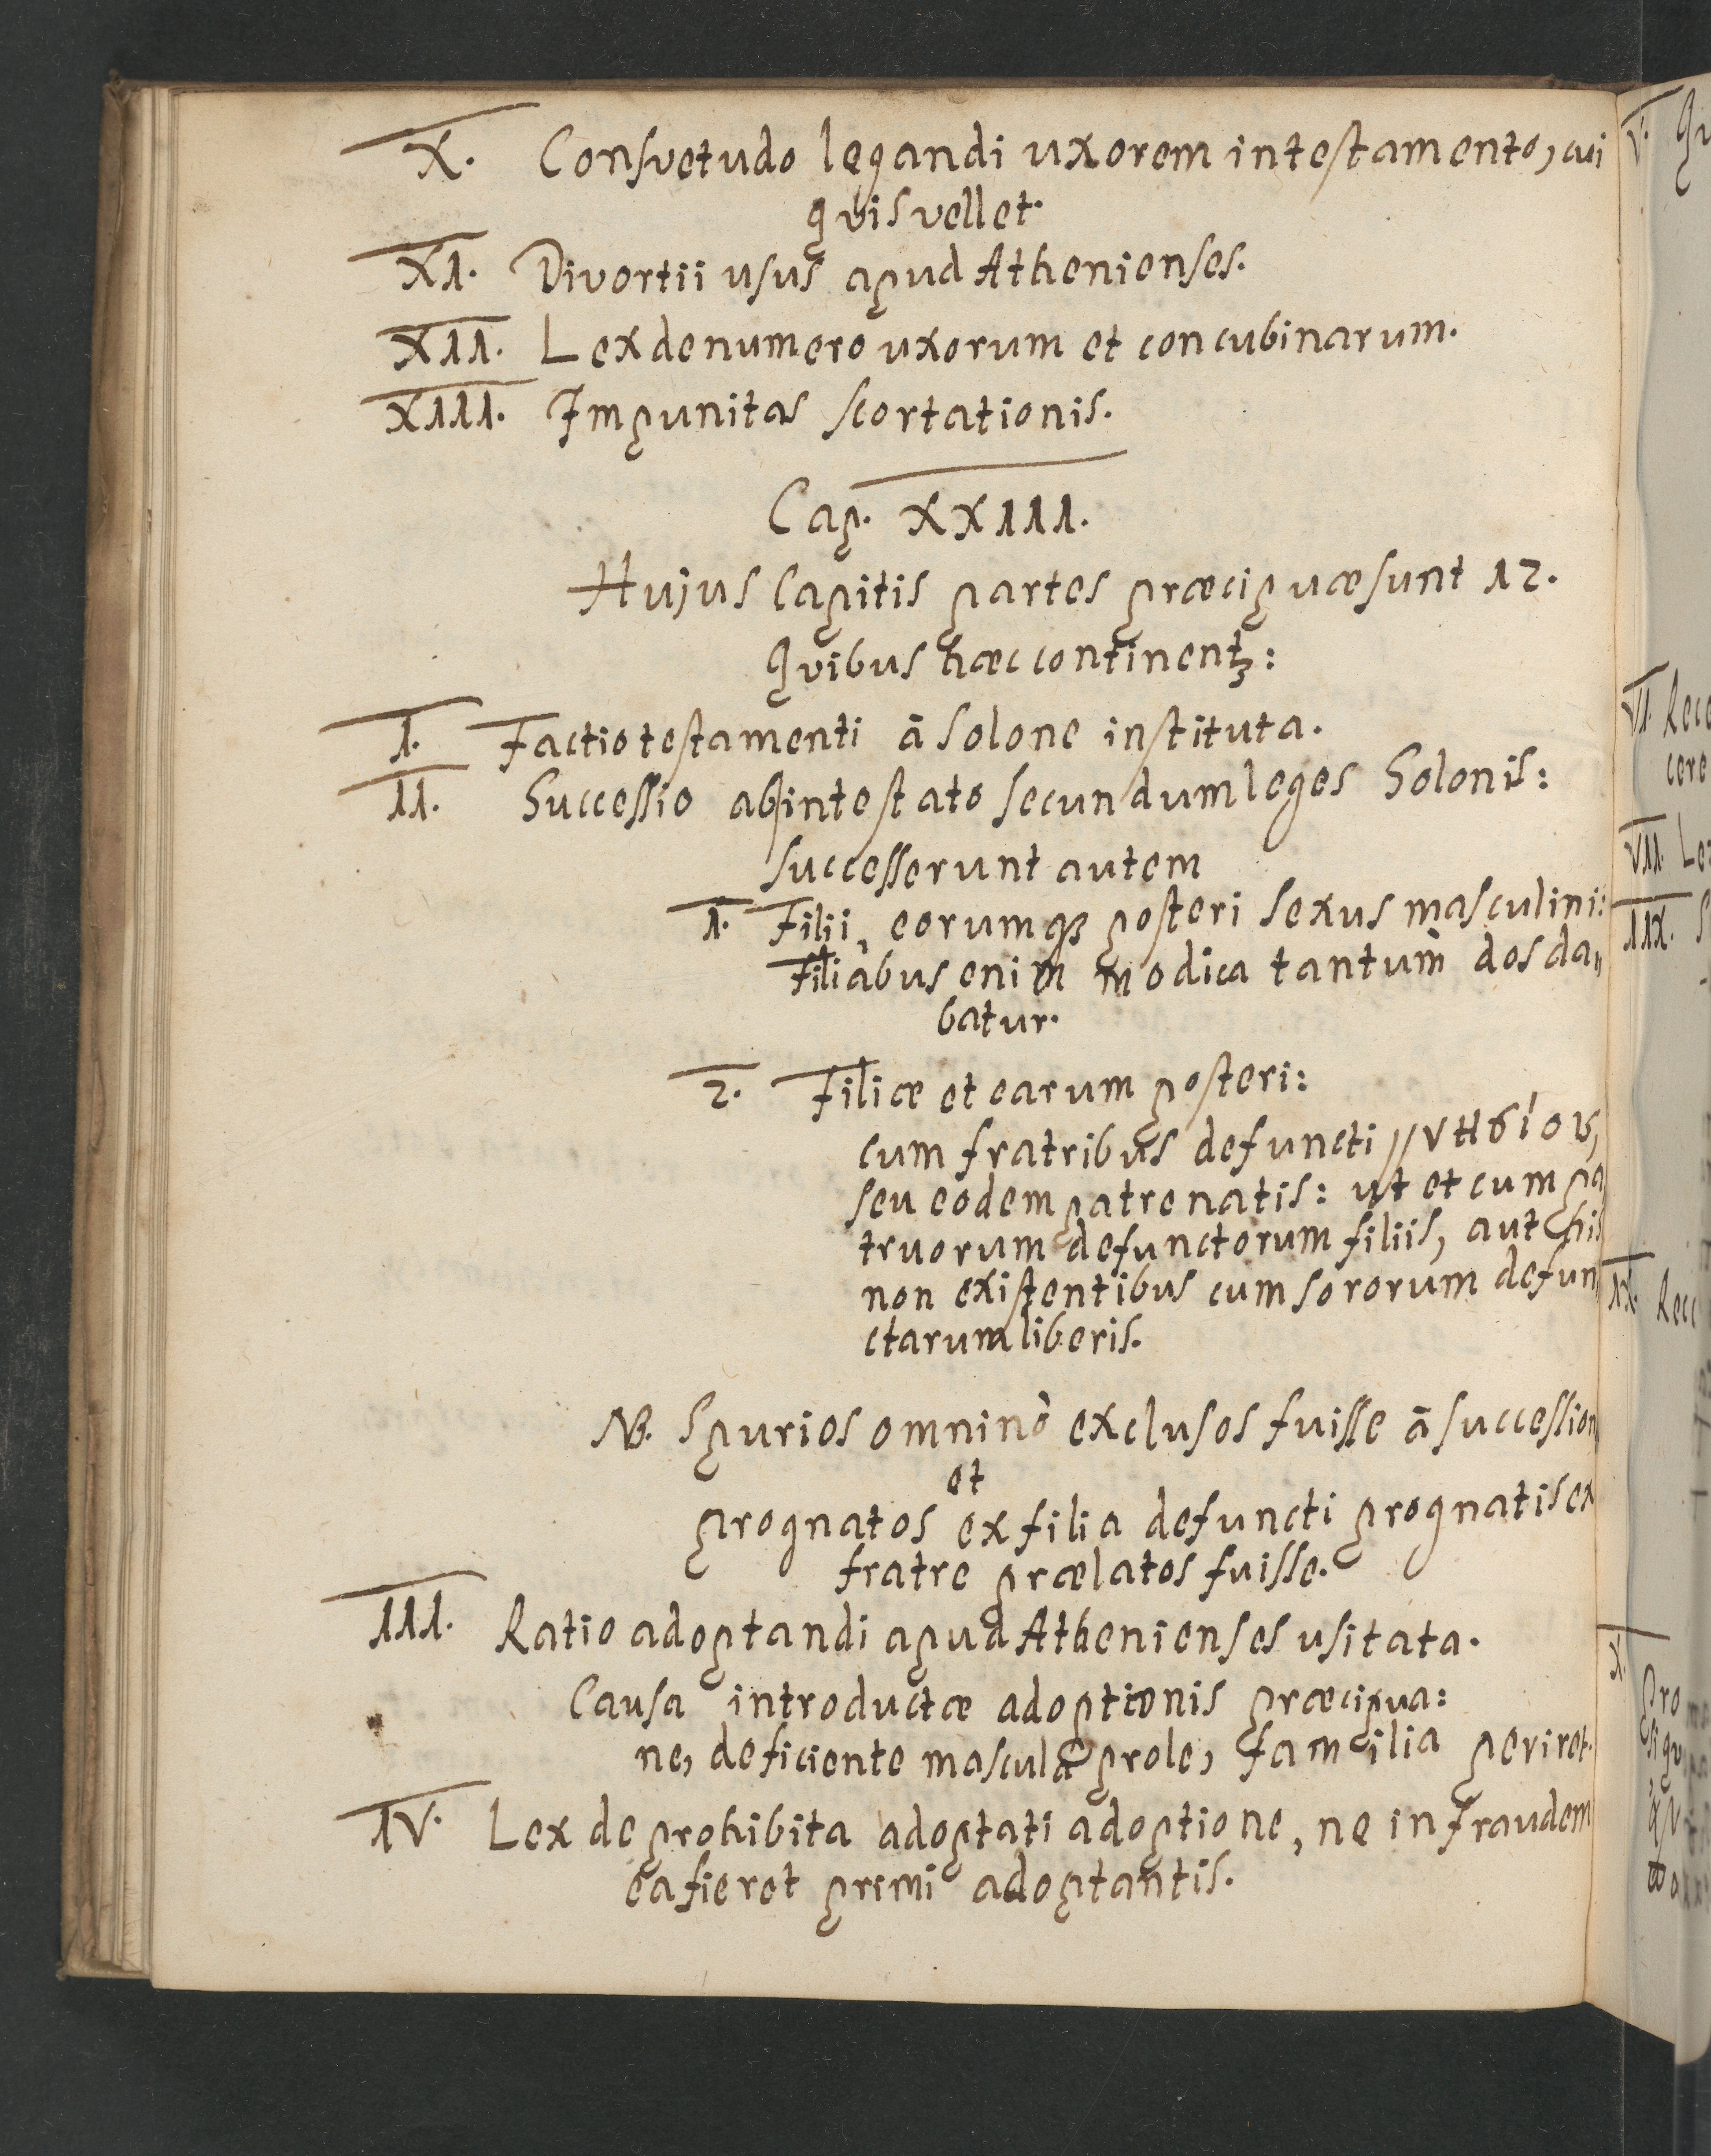 X. Consvetudo legandi uxorem in testamento, cui
qvis vellet.
XI. Divortii usus apud Athenienses.
XII. Lex de numero uxorum et concubinarum.
XIII. Impunitas scortationis.
Cap. XXIII.
Hujus Capitis partes præcipuæ sunt 12.
Qvibus hæc continentꝫ:
I. Factio testamenti ā Solone instituta.
II. Successio ab intestato secundum leges Solonis:
successerunt autem
1. Filii, eorumqꝫ posteri sexus masculini:
Filiabus enim modica tantùm dos da„
batur.
2. Filiæ et earum posteri:
cum fratribus defuncti
seu eodem patre natis: ut et cum pa
truorum defunctorum filiis, aut his
non existentibus cum sororum defun
ctarum liberis.
NB. Spurios omninò exclusos fuisse ā succession
et
prognatos ex filia defuncti prognatis ex
fratre prælatos fuisse.
III. Ratio adoptandi apud Athenienses usitata.
Causa introductæ adoptionis præcipua:
ne, deficiente mascula prole, familia periret.
IV. Lex de prohibita adoptati adoptione, ne in fraudem
ea fieret primi adoptantis.
V. Qu
VI. Rece
cere
VII. Lex
IIX. S
IX. Rec
X. Pro
siqv
qv